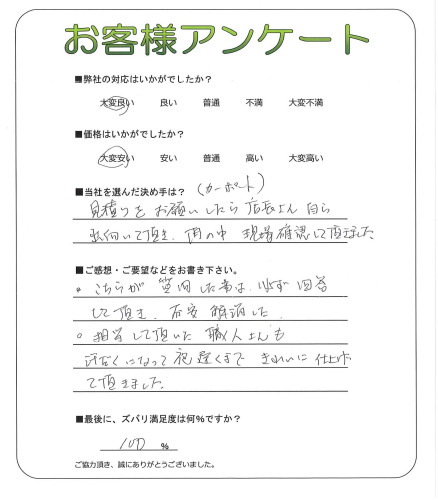 お客様アンケート
■弊社の対応はいかがでしたか？
大変良い 良い 普通 不満 大変不満
■価格はいかがでしたか？
大変安い 安い 普通 高い 大変高い
■当社を選んだ決め手は？ (カーポート)
見積りをお願いしたら店長さん自ら
出向いて頂き、雨の中 現場確認して頂きました
■ご感想・ご要望などをお書き下さい。
。こちらが 質問した事は、必ず 回答
して頂き、不安 解消した.
。担当して頂いた 職人さんも
汗だくになって 夜遅くまで きれいに 仕上げ
て頂きました.
■最後に、ズバリ満足度は何%ですか？
100 %
ご協力頂き、誠にありがとうございました。